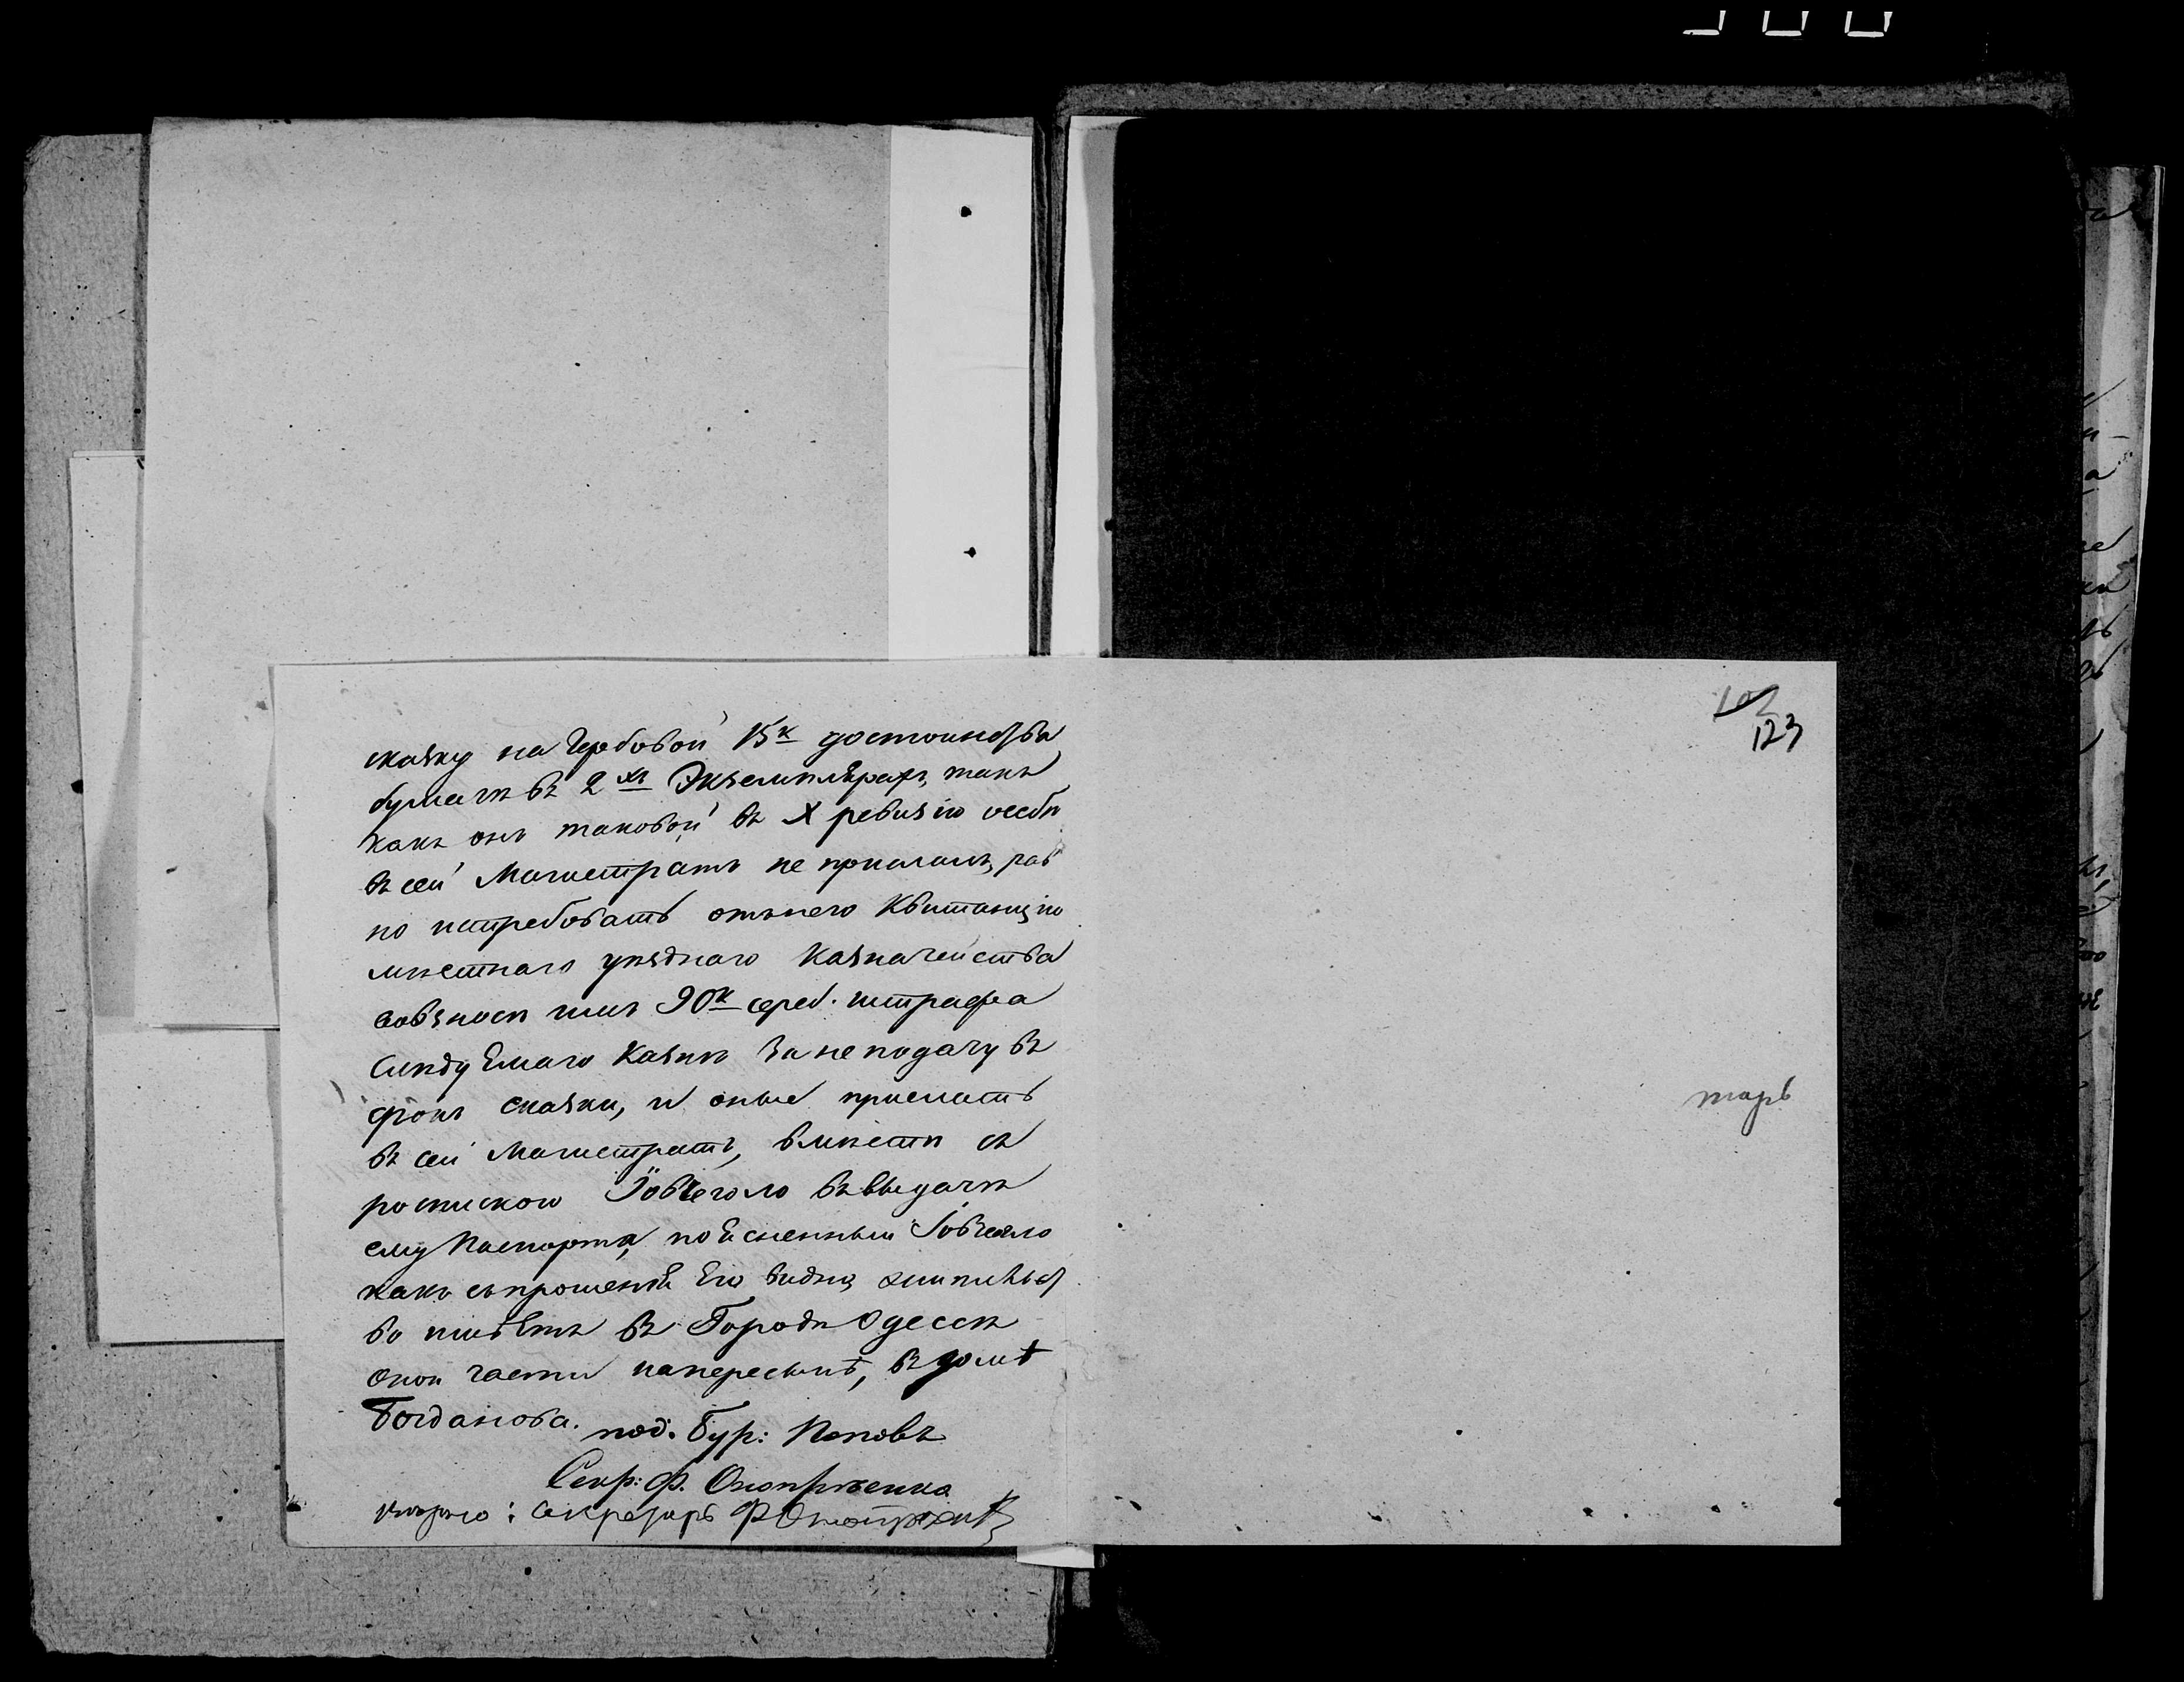 сказку на Гербовой 15к достоинства
бумагѣ въ 2хъ Экземплярахъ, такъ
какъ онъ таковой въ X ревизію особѣ
въ сей Магистратъ не присылалъ, рав
но истребовать отънего Квитанцію
мѣстнаго уѣзднаго Казначейства
овзносѣ имъ 90к сереб. штрафа
слѣдуемаго Казнѣ за не подачу въ
срокъ сказки, и оные прислать
въ сей Магистратъ, вмѣстѣ съ
роспискою въ выдачѣ
ему Паспорта,
какъ съпрошенія Его видно,
въ Городѣ Одессѣ
оной части напересыпѣ, въ домѣ
Богданова.
под. Бур: Поповъ
Секр: Ф.
вѣрно: Секретарь Ф
102
123
тарь